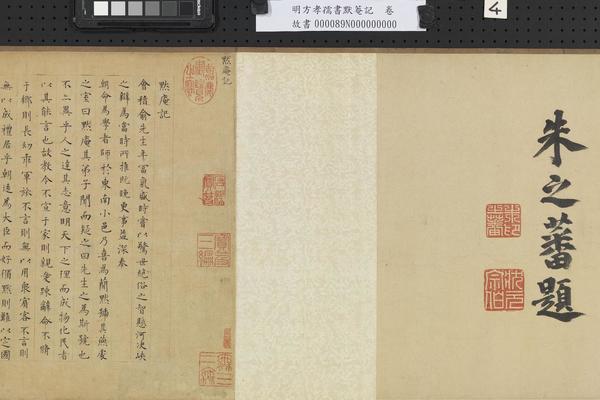 明方孝孺書默菴記 卷
故書 000089N000000000
4
朱之蕃題
狀元宗伯
默庵記
嘉慶御覽之寶
寶笈三編
默庵記
會稽俞先生年富氣盛時嘗以驚世絕俗之智懸河决峽
之辯為當時所推既晚更事益深奉
朝命為學者師於東南小邑乃喜為簡默 其燕處
之室曰默庵其弟子聞而疑之曰先生之為斯號也
不 異乎人之達其志意明天下之理而成物化民者
以其能言也故教令不宣于家則親愛疎辭命不脩
于鄉則長幼乖軍旅不言則無以用眾賓客不言則
無以成禮居乎朝達為大臣而好循默則難以定國